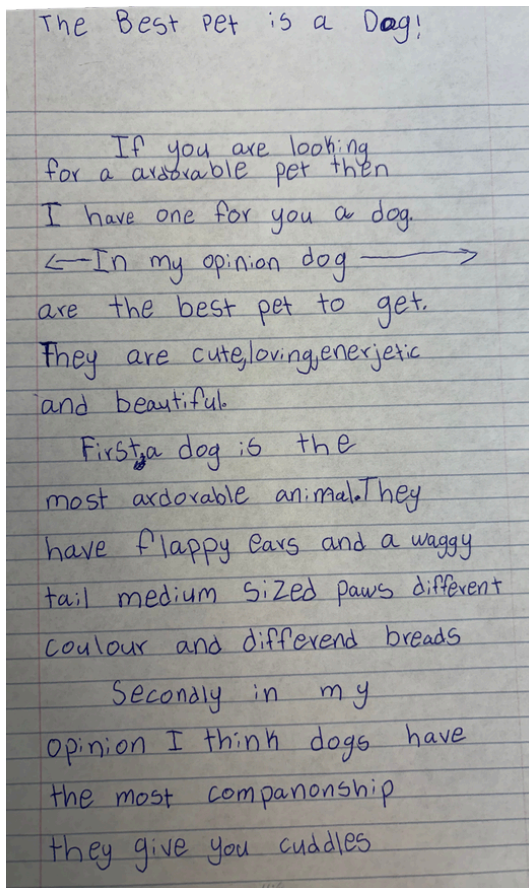 The Best Pet is a Dog!
If you are looking
for a ardorable pet then
I have one for you a dog.
←In my opinion dog →
are the best pet to get.
They are cute,loving,enerjetic
and beautiful.
First,a dog is the
most ardorable animal.They
have flappy ears and a waggy
tail medium sized paws different
coulour and differend breads
Secondly in my
opinion I think dogs have
the most companonship
they give you cuddles